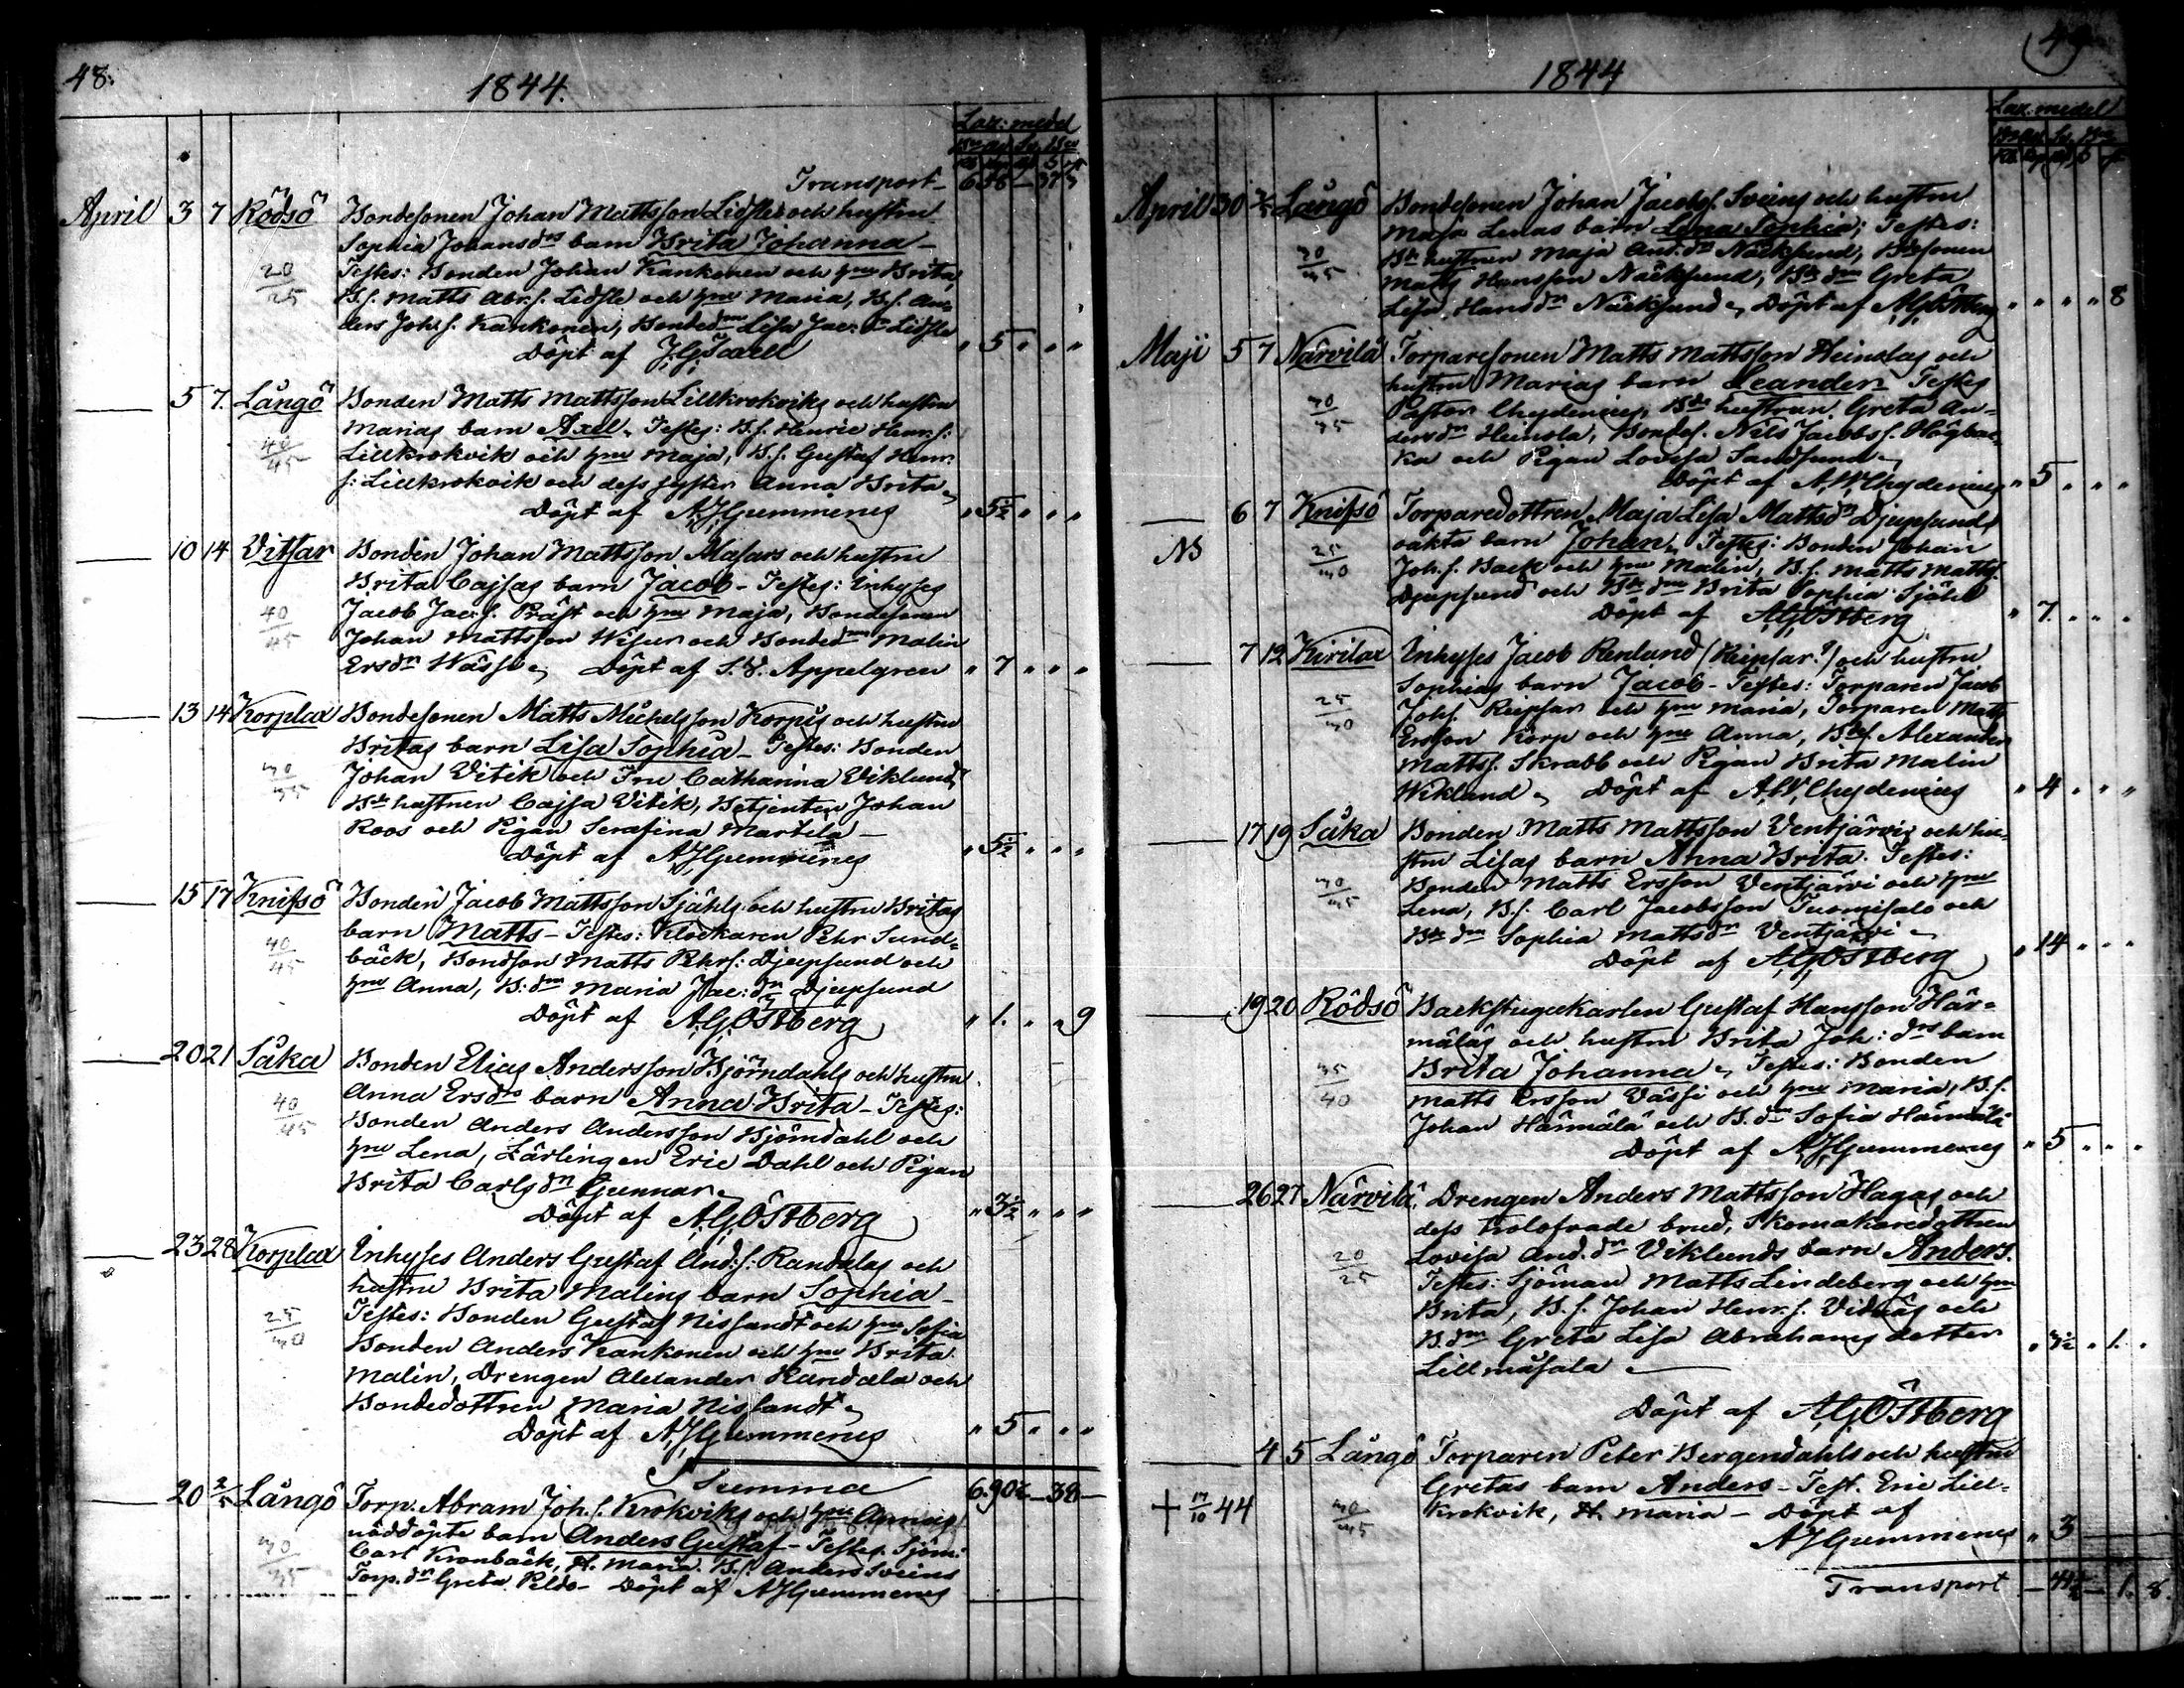 48.
1844.
Laz: medel
Transport 6.
April 3 7 Rödsö Bondesonen Johan Mattsson Lidsles och hustru
Sophia Johansdrs barn Brita Johanna –
20/25 Testes: Bonden Johan Kankonen och hru Brita,
B.s. Matts Abr.s. Lidsle och hru Maria, B.s. An-
ders Joh.s. Kankonen, Bondedrn Lisa Jac. dr Lidsle
Döpt af " 5 " " "
5 7. Långö Bonden Matts Mattsson Lillkrokviks och hustru
Marias barn Axel. Testes: B.s. Henric Henr.s:
40/45 Lillkrokvik och hru Maja, B.s. Gustaf Henr.
s: Lillkrokvik och dess syster Anna Brita
Döpt af AJGummerus " 5½ " " "
10 14 Vitsar Bonden Johan Mattsson och hustru
Brita Cajsas barn Jacob – Testes: Inhyses
40/45 Jacob Jac.s. Präst och hru Maja, Bondesonen
Johan Mattsson och Bondedrn Malin
Ersdr Wässi. Döpt af Appelgren " 7 " " "
13 14 Korplax Bondesonen Matts Michelsson Korpis och hustru
Britas barn Lisa Sophia – Testes: Bonden
Johan Vitik och Fru Catharina Viklund,
Bde hustrun Cajsa Vitik, Betjenten Johan
Roos och Pigan Serafina Martila –
Döpt af AJGummerus " 5½ " " "
15 17 Knifsö Bonden Jacob Mattsson Sjöhls och hustru Britas
barn Matts – Testes: Klockaren Pehr Sund-
40/45 bäck, Bondson Matts Pehrs: Djupsund och
hru Anna, B:drn Maria Jac:dr Djupsund
Döpt af AGÖstberg " 1. " " 9
20 21 Såka Bonden Elias Andersson Björndahls och hustru
Anna Ersdrs barn Anna Brita – Testes:
40/45 Bonden Anders Andersson Björndahl och
hru Lena, Lärlingen Eric Dahl och Pigan
Brita Carlsdr Gunnar
Döpt af AGÖstberg " 3½ " " "
23 28 Korplax Inhyses Anders Gustaf And:s: Randalas och
hustru Brita Malins barn Sophia –
Testes: Bonden Gustaf Nissandt och hru Sofia
Bonden Anders Kankonen och hru Brita
Malin, Drengen Alexander Randala och
Bondedottren Maria Nissandt
Döpt af AJGummerus " 5 " " "
Summa 6.90½ – 38 –
20 2/5 Långö Torp. Abram Joh.s. Krokviks och hru Annas
nöddöpte barn Anders Gustaf – Testes. Sjöm:
Carl Kronbäck, H. Maria. B.s. Anders Sveins
Torp.dr Greta Peldo – Döpt af AJGummerus
49
1844
Laz: medel
April 30 2/5 Långö Bondesonen Johan Jacobss. Sveins och hustru
Maja Lenas barn Lena Sophia; Testes:
Bde hustrun Maja And.dr Näcksund, Bdesonen
Matts Hansson Näcksund, Bde drn Greta
Lisa Hansdr Näcksund. Döpt af AGÖstberg " " " " 8
Maji 5 7 Närvilä Torparesonen Matts Mattsson Heinolas och
hustru Marias barn Leander. Testes
Pastor Chydenius, Bde hustrun Greta An-
dersdr Heinola, Bondes. Nils Jacobss. Högbac-
ka och Pigan Lovisa Sandsund
Döpt af A.W.Chydenius " 5 " " "
6 7 Knifsö Torparedottren Maja Lisa Mattsdr Djupsund,
NB oäkta barn Johan. Testes: Bonden Johan
Joh.s. Back och hru Malin, B.s. Matts Matts.
Djupsund och Bde drn Brita Sophia Sjöhl
Döpt af AGÖstberg " 7. " " "
7 12 Kirilax Inhyses Jacob Renlund (Riipsar?) och hustru
Sophias barn Jacob – Testes: Torparen Jacob
Johs. Riipsar och hru Maria, Torparen Matts
Ersson Korp och hru Anna, Bdes. Alexander
Mattss. Skrabb och Pigan Brita Malin
Wiklund. Döpt af A.W.Chydenius " 4 " " "
17 19 Såka Bonden Matts Mattsson Ventjärvis och hu-
stru Lisas barn Anna Brita. Testes:
Bonden Matts Ersson Ventjärvi och hru
Lena, B.s. Carl Jacobsson Tuomisalo och
Bde drn Sophia Mattsdr Ventjärvi
Döpt af AGÖstberg " 14 " " "
19 20 Rödsö Backstugukarlen Gustaf Hansson Här-
mäläs och hustru Brita Joh:drs barn
35/40 Brita Johanna. Testes: Bonden
Matts Ersson Vässi och hru Maria, B.s.
Johan Härmälä och B.drn Sofia Härmälä
Döpt af AJGummerus " 5 " " "
26 27 Närvilä. Drengen Anders Mattsson Hagas och
dess trolofvade brud, Skomakaredottren
20/25 Lovisa And.dr Viklunds barn Anders.
Testes: Sjöman Matts Lindeberg och hru
Brita, B.s. Johan Henr.s. Vidnäs och
B.drn Greta Lisa Abrahams dotter
Lillmåsala
Döpt af AGÖstberg
4 5 Långö Torparen Peter Bergendahls och hustru
Gretas barn Anders – Test. Eric Lill-
+ 17/10 44 krokvik, H. Maria – Döpt af
AJGummerus " 3
Transport – 44½ – 1. 8.